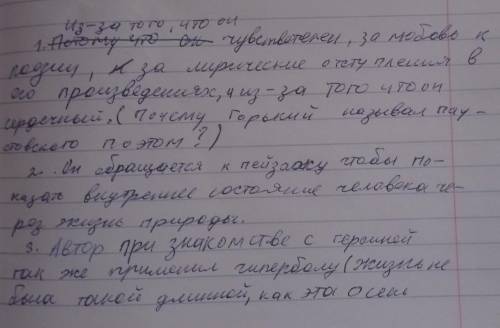 Из-за того, что он
1. Потому что он чувствителен, за любовь к
поэзии, и за лирические отступления в
его произведениях, и из-за того что он
сердечный. (Почему Горький называл Пау-
стовского поэтом?)
2. Он обращается к пейзажу чтобы по-
казать внутреннее состояние человека че-
рез жизнь природы.
3. Автор при знакомстве с героиней
так же применил гиперболу (жизнь не
была такой длинной, как эта осень